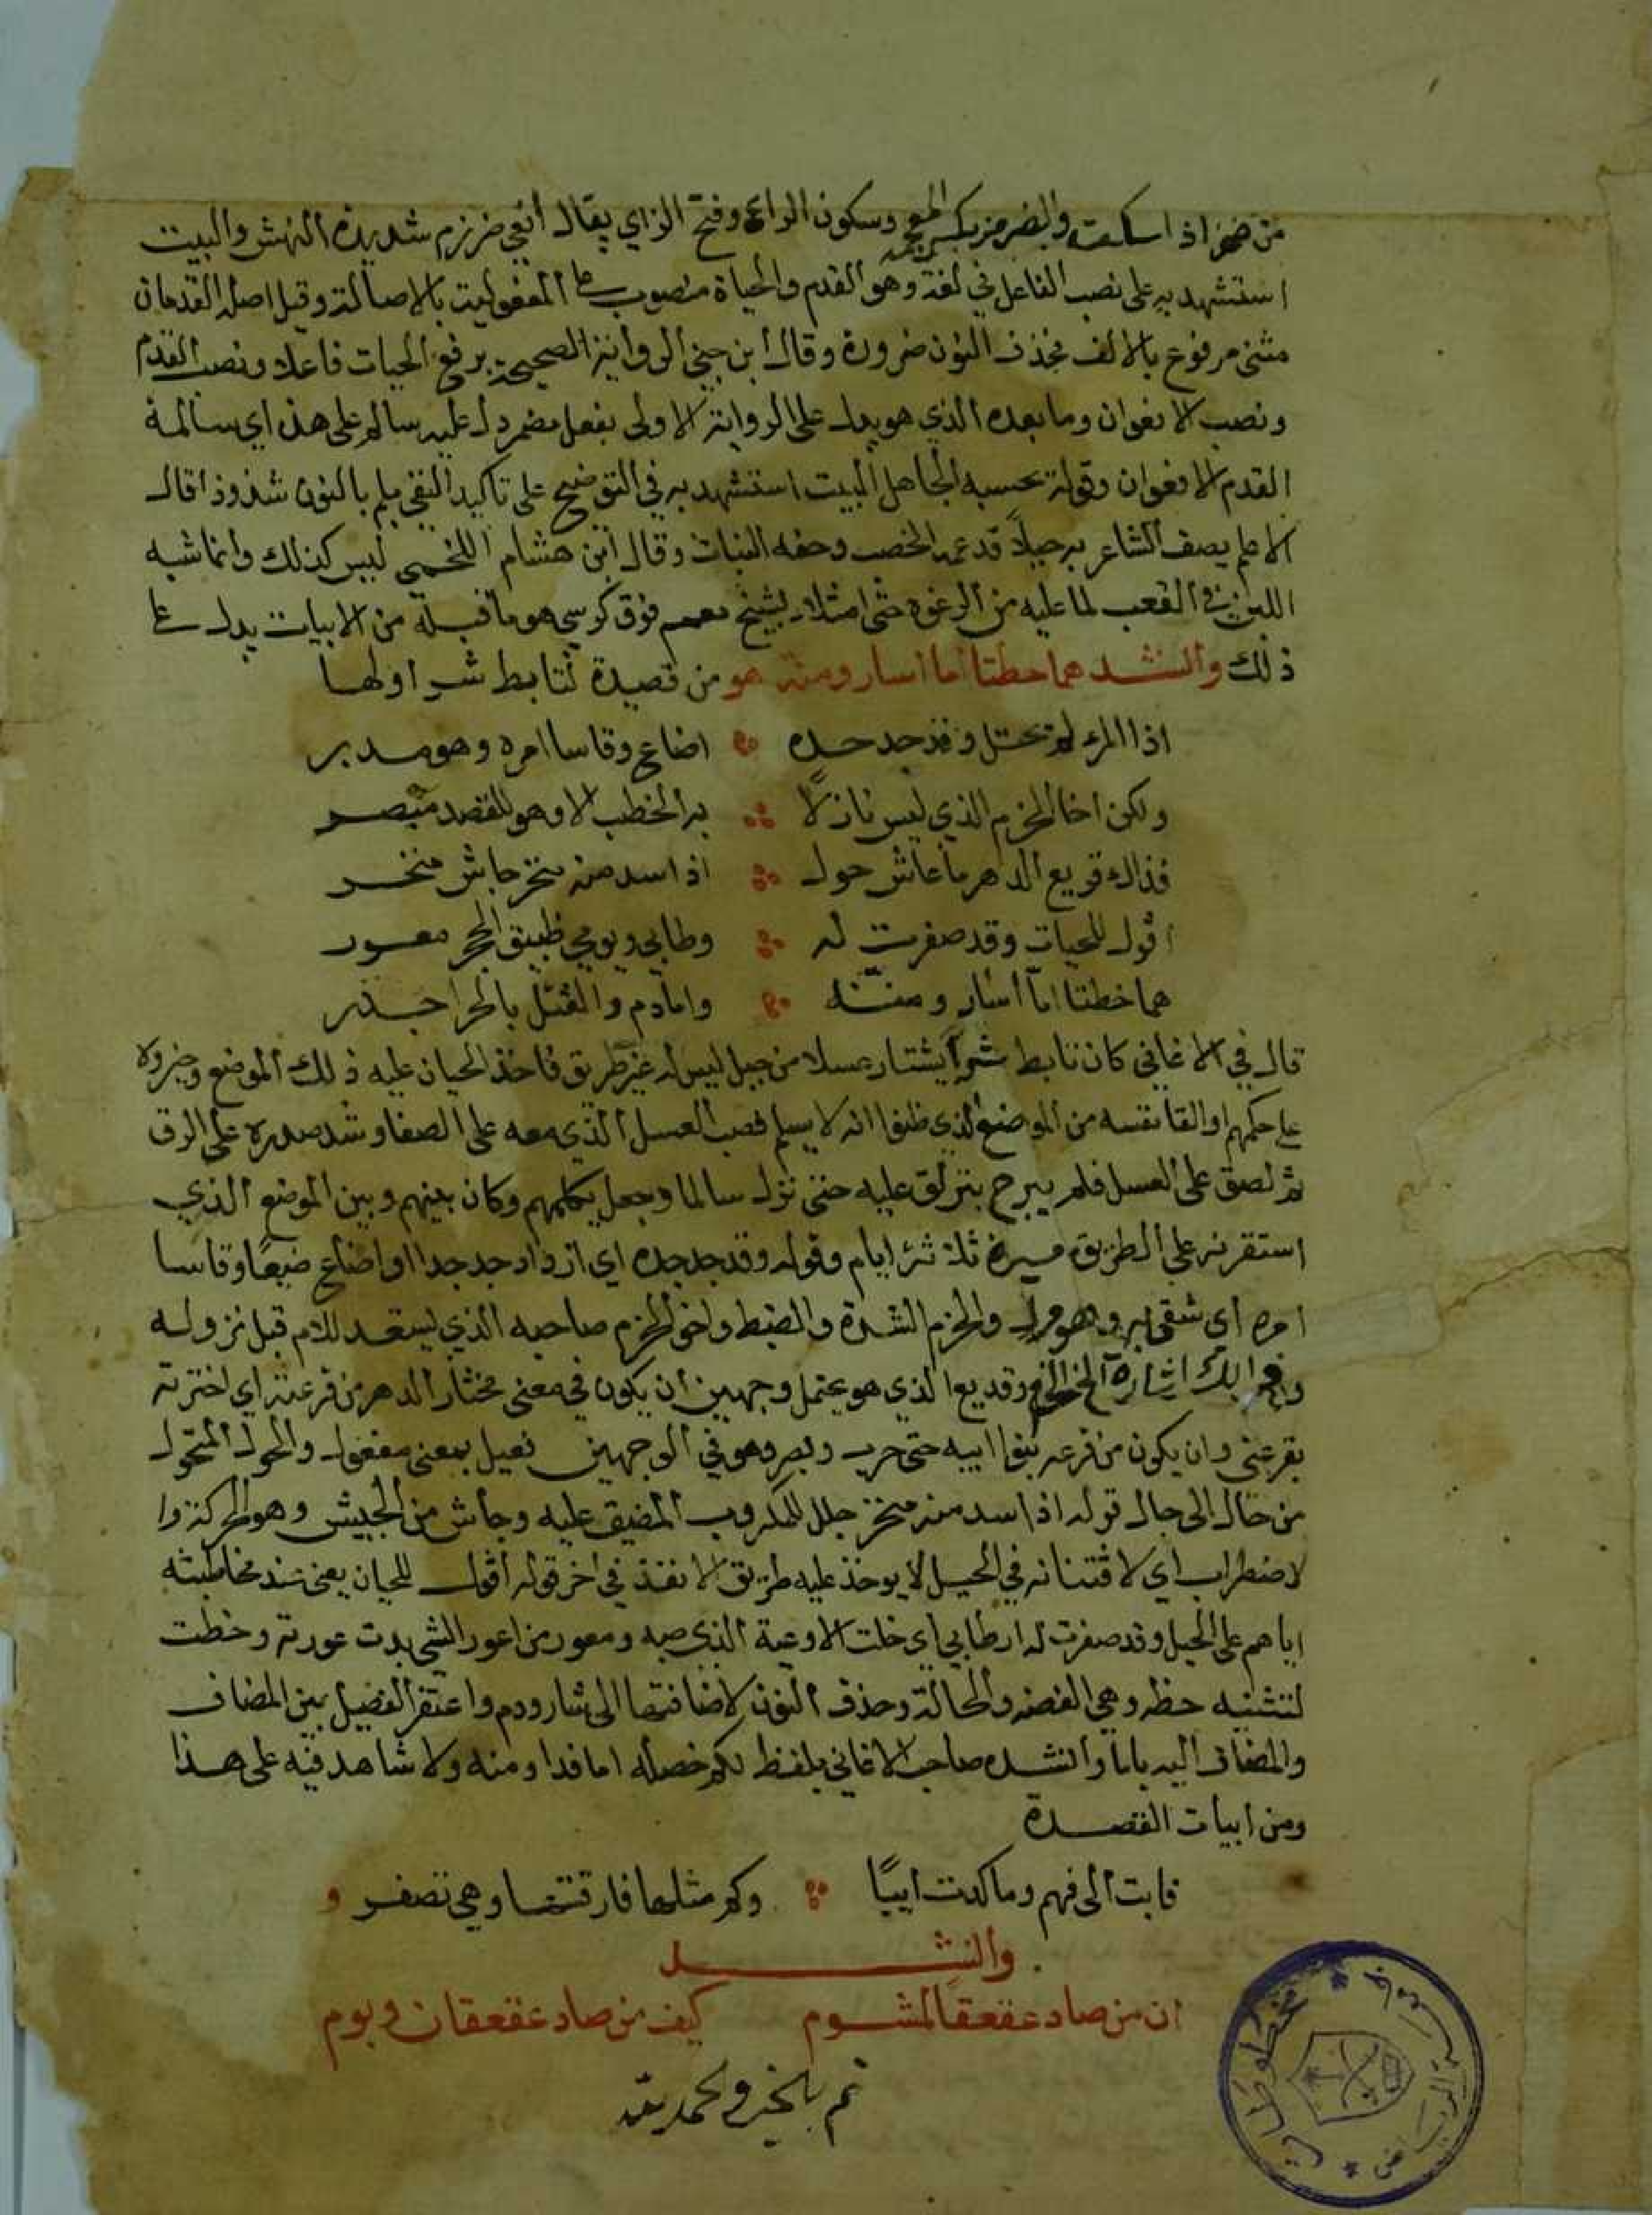 من ضمز اذا سكت والضرمز بكسر المعجمه وسكون الراء وفتح الزاي يقال افعي ضرزم شديدة النهش والبيت
استشهد به على نصب الفاعل في لغة وهو القدم والحياة منصوب على المفعوليت بالاصالة وقيل اصله القدمان
مثنى مرفوع بالالف فحذف النون ضرورة وقال ابن جني الرواية الصحيحة برفع الحيات فاعلا ونصب القدم
ونصب الافعوان وما بعده الذي هو بدل على الرواية الاولى بفعل مضمر دل عليه سالم على هذا اي سالمة
القدم الافعوان وقوله يحسبه الجاهل البيت استشهد به في التوضيح على تاكيد النفي بلم بالنون شذوذا قال
الاعلم يصف الشاعر به جبلاً قد عمه الخصب وحفه النبات وقال ابن هشام اللخمي ليس كذلك وانما شبه
اللبن في القعب لما عليه من الرغوه حتى امتلا بشيخ معمم فوق كرسي هو ما قبله من الابيات يدل على
ذلك وانشد هما خطتا اما اسار ومنة هو من قصيدة لتابط شرا اولها
اذا المرء لم يحتل وقد جد جده اضاع وقاسا امره وهو مدبر
ولكن اخا الحزم الذي ليس نازلاً به الخطب الا وهو للقصد مبصر
فذاك قريع الدهر ما عاش حول اذا سد منه منخر جاش منخر
اقول للحيات وقد صفرت له وطابي ويومي ضيق الحجر معور
هما خطتا اما أسار ومنّة وامادم والقتل بالحر اجدر
قال في الاغاني كان تابط شراً يشتار عسلا من جبل ليس له غير طريق فاخذ لحيان عليه ذلك الموضع وخيروه
على حكمهم او القا نفسه من الموضع الذي ظنوا انه لا يسلم فصب العسل الذي معه على الصفا وشد صدره على الزق
ثم لصق على العسل فلم يبرح يتزلق عليه حتى نزل سالما وجعل يكلمهم وكان بينهم وبين الموضع الذي
استقر به على الطريق مسيرة ثلاثة ايام وقوله وقد جد جده اي ازداد جد جدا او اضاع ضيعًا وقاسا
امره اي شقي به وهو مدبر والحزم الشدة والضبط واخو الحزم صاحبه الذي يستعد للامر قبل نزوله
اشارة الى وقريع الذي هو يحتمل وجهين ان يكون في معنى مختار الدهر من قرعته اي اخترته
بقرعتي وان يكون من قرعه بنوا ابيه حتى جرب وبصر وهو في الوجهين فعيل بمعنى مفعول والحول المتحول
من حال الى حال قوله اذا سد منه منخر جلل للمكروب المضيق عليه وجاش من الجيش وهو الحركة وا
لاضطراب اي لافتنانه في الحيل لا يوخذ عليه طريق الا نفذ في اخر قوله اقول للحيان يعني عند مخاطبته
اياهم على الحبل وقد صفرت له ارطابي اي خلت الاوعية الذي صبه ومعور من اعور الشي بدت عورته وخطت
لتثنيه خطه وهي القصه والحالة وحذف النون لاضافتها الى ثار ودم واغتفر الفصيل بين المضاف
والمضاف اليه باما وانشده صاحب الاغاني بلفظ لكم خصله اما فدا ومنه ولا شاهد فيه على هذا
ومن ابيات القصدة
فابت الى فهم وما كدت ايبًا وكم مثلها فارقتها وهي تصفر و
وانشد
ان من صاد عقعقا لمشوم كيف من صاد عقعقان وبوم
تم بالخير والحمد لله
جامعة الرياض
مخطوطات